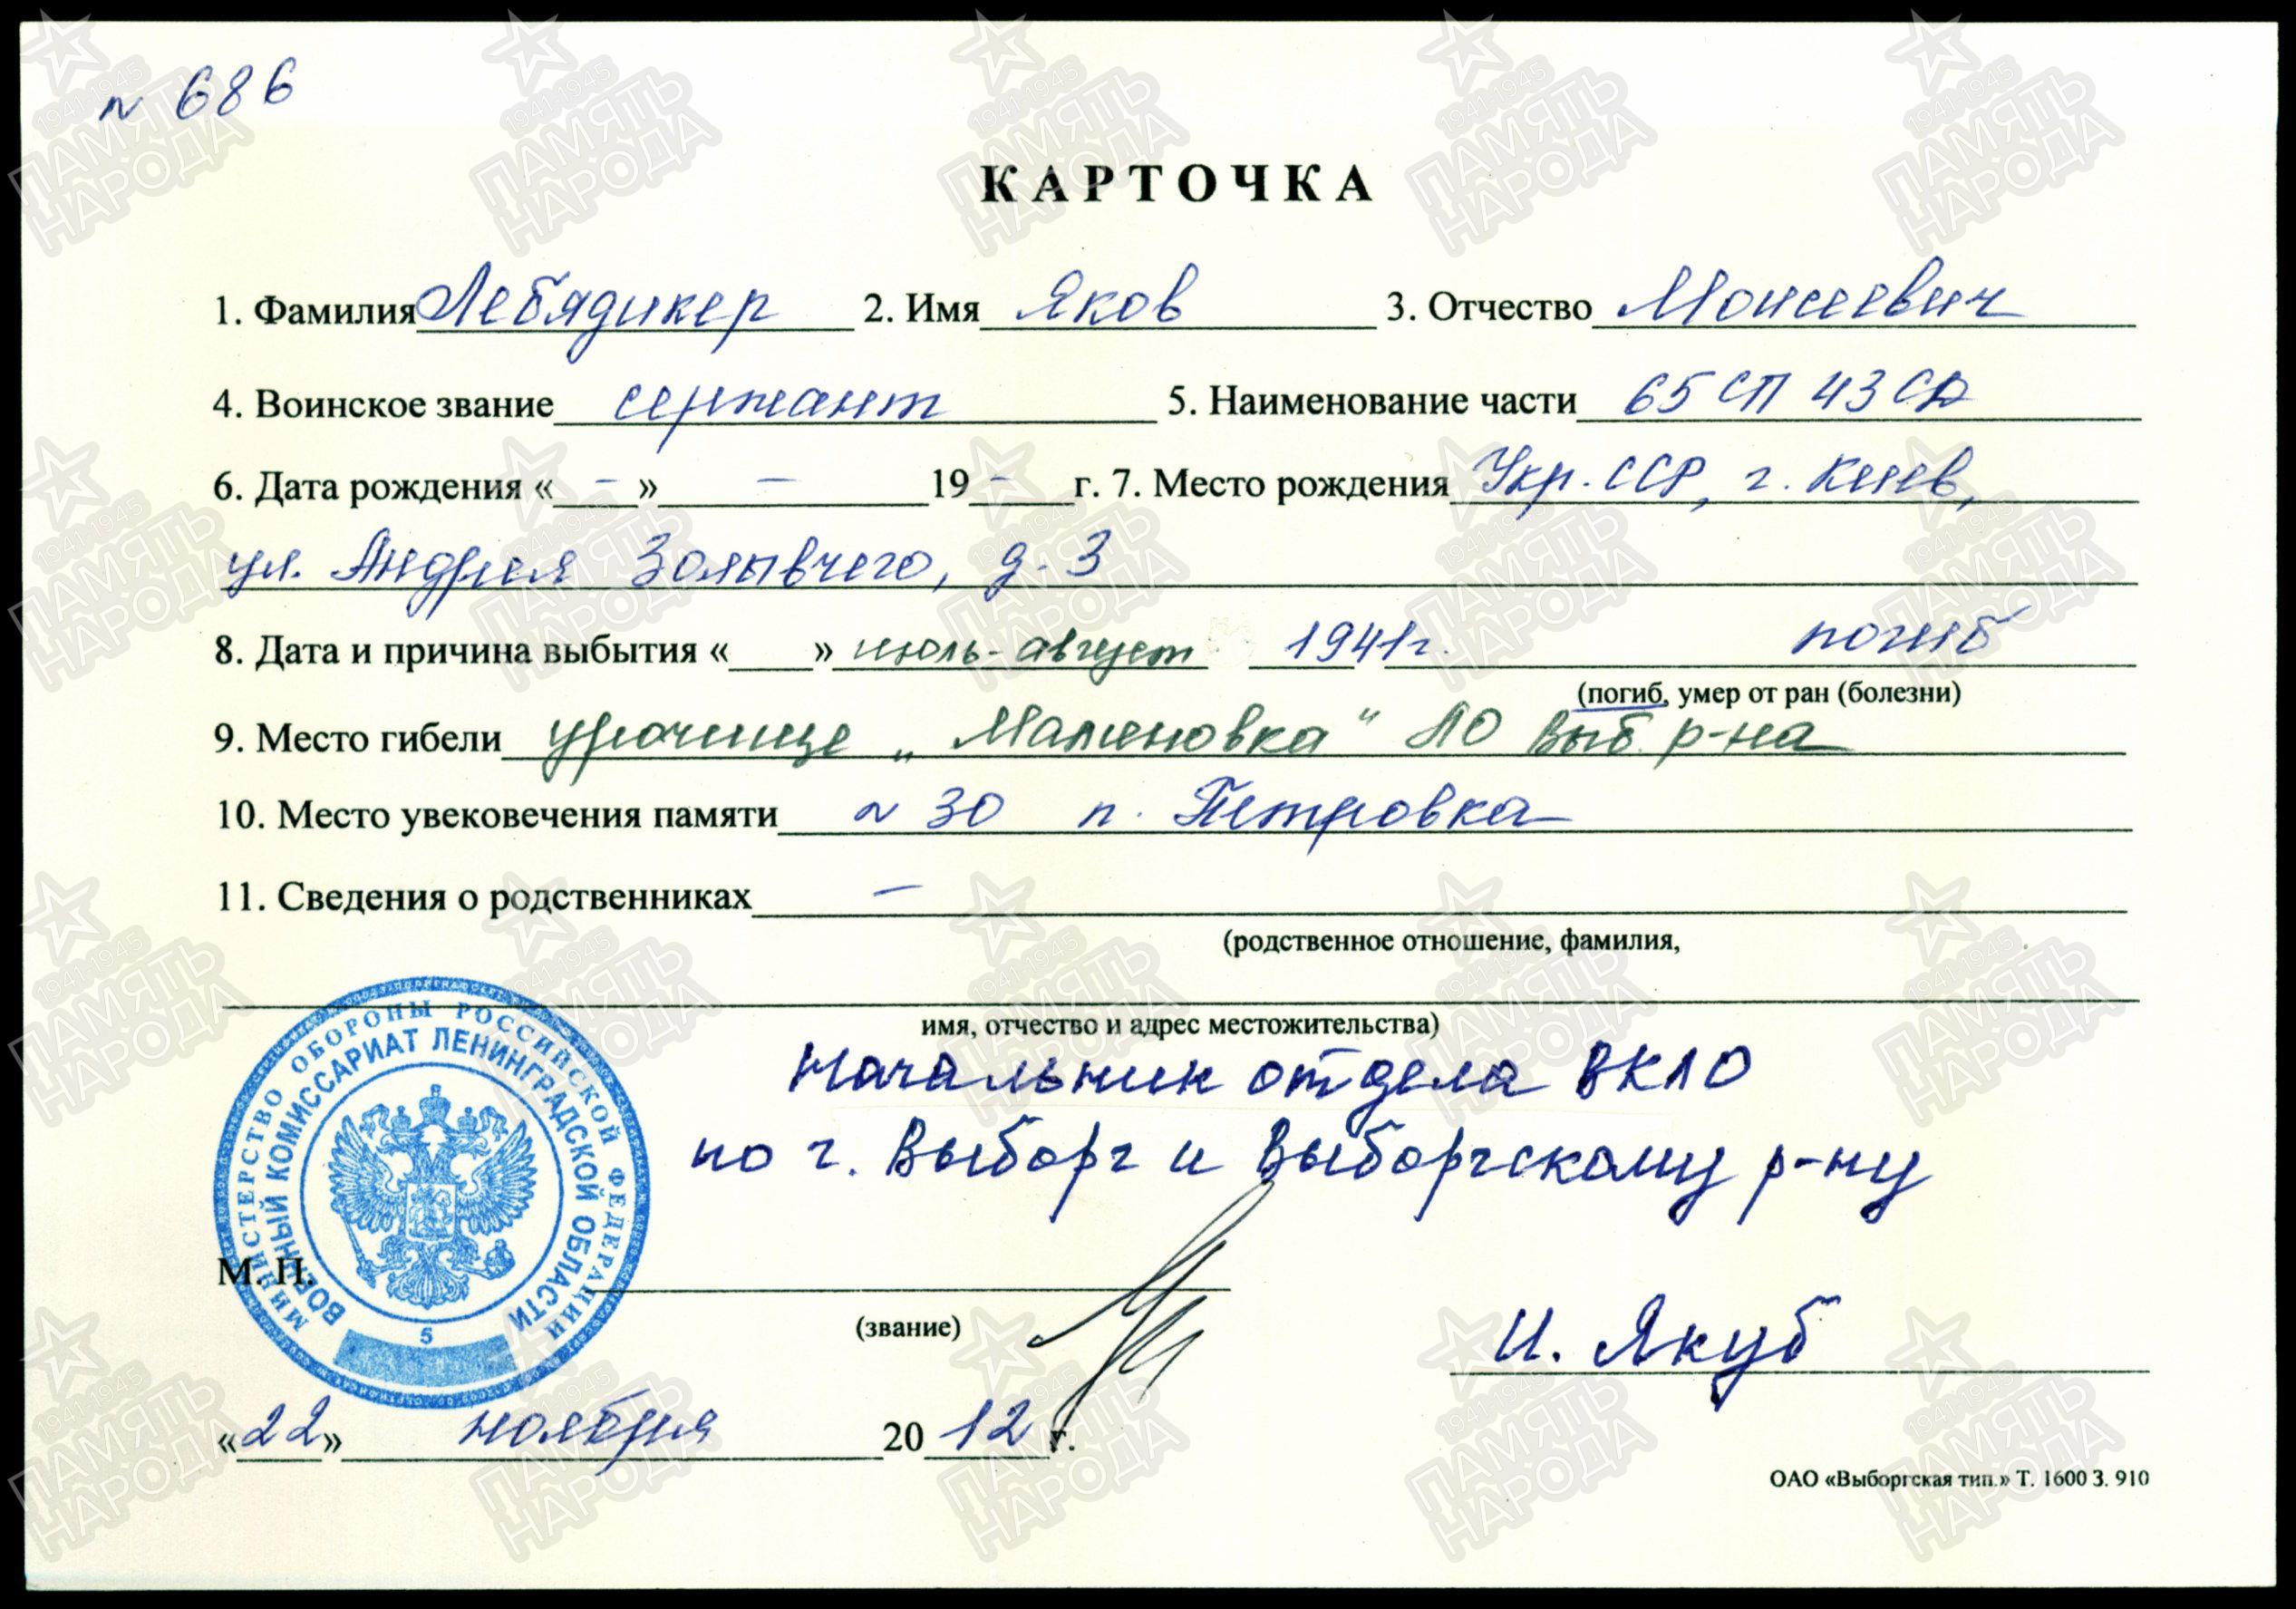 № 686
КАРТОЧКА
1. Фамилия Лебядикер 2. Имя Яков 3. Отчество Моисеевич
4. Воинское звание сержант 5. Наименование части 65 СП 43 СД
6. Дата рождения « - » - 19 - г. 7. Место рождения Укр. ССР, г. Киев,
ул. Андрея Золывчего, д. 3
8. Дата и причина выбытия « » июль-август 1941г. погиб
(погиб, умер от ран (болезни)
9. Место гибели урочище „Малиновка“ ЛО Выб. р-на
10. Место увековечения памяти № 30 п. Петровка
11. Сведения о родственниках -
(родственное отношение, фамилия,
имя, отчество и адрес местожительства)
Начальник отдела ВКЛО
по г. Выборг и Выборгскому р-ну
МИНИСТЕРСТВО ОБОРОНЫ РОССИЙСКОЙ ФЕДЕРАЦИИ
ВОЕННЫЙ КОМИССАРИАТ ЛЕНИНГРАДСКОЙ ОБЛАСТИ
5
М. П.
(звание)
И. Якуб
«22» ноября 2012 г.
ОАО «Выборгская тип.» Т. 1600 З. 910
1941-1945
ПАМЯТЬ
НАРОДА